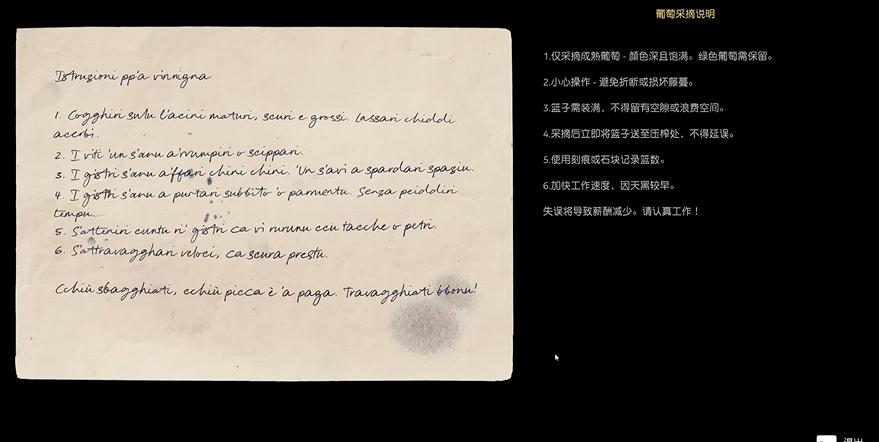 Istruzioni pp'a vinnigna
1. Cogghiri sulu l'acini maturi, scuri e grossi. Lassari chiddi
acerbi.
2. I viti 'un s'anu a rrumpiri o scippari.
3. I gistri s'anu a ffari chini chini. 'Un s'avi a spardari spaziu.
4. I gistri s'anu a purtari subbito 'o parmentu. Senza peiddiri
tempu.
5. S'atteniri cuntu ri' gistri ca vi rurunu ccu tacche o petri.
6. S'attravagghari veloci, ca scura prestu.
Cchiù sbagghiati, cchiù picca è 'a paga. Travagghiati bbonu!
葡萄采摘说明
1.仅采摘成熟葡萄 - 颜色深且饱满。绿色葡萄需保留。
2.小心操作 - 避免折断或损坏藤蔓。
3.篮子需装满，不得留有空隙或浪费空间。
4.采摘后立即将篮子送至压榨处，不得延误。
5.使用刻痕或石块记录篮数。
6.加快工作速度，因天黑较早。
失误将导致薪酬减少。请认真工作！
退出